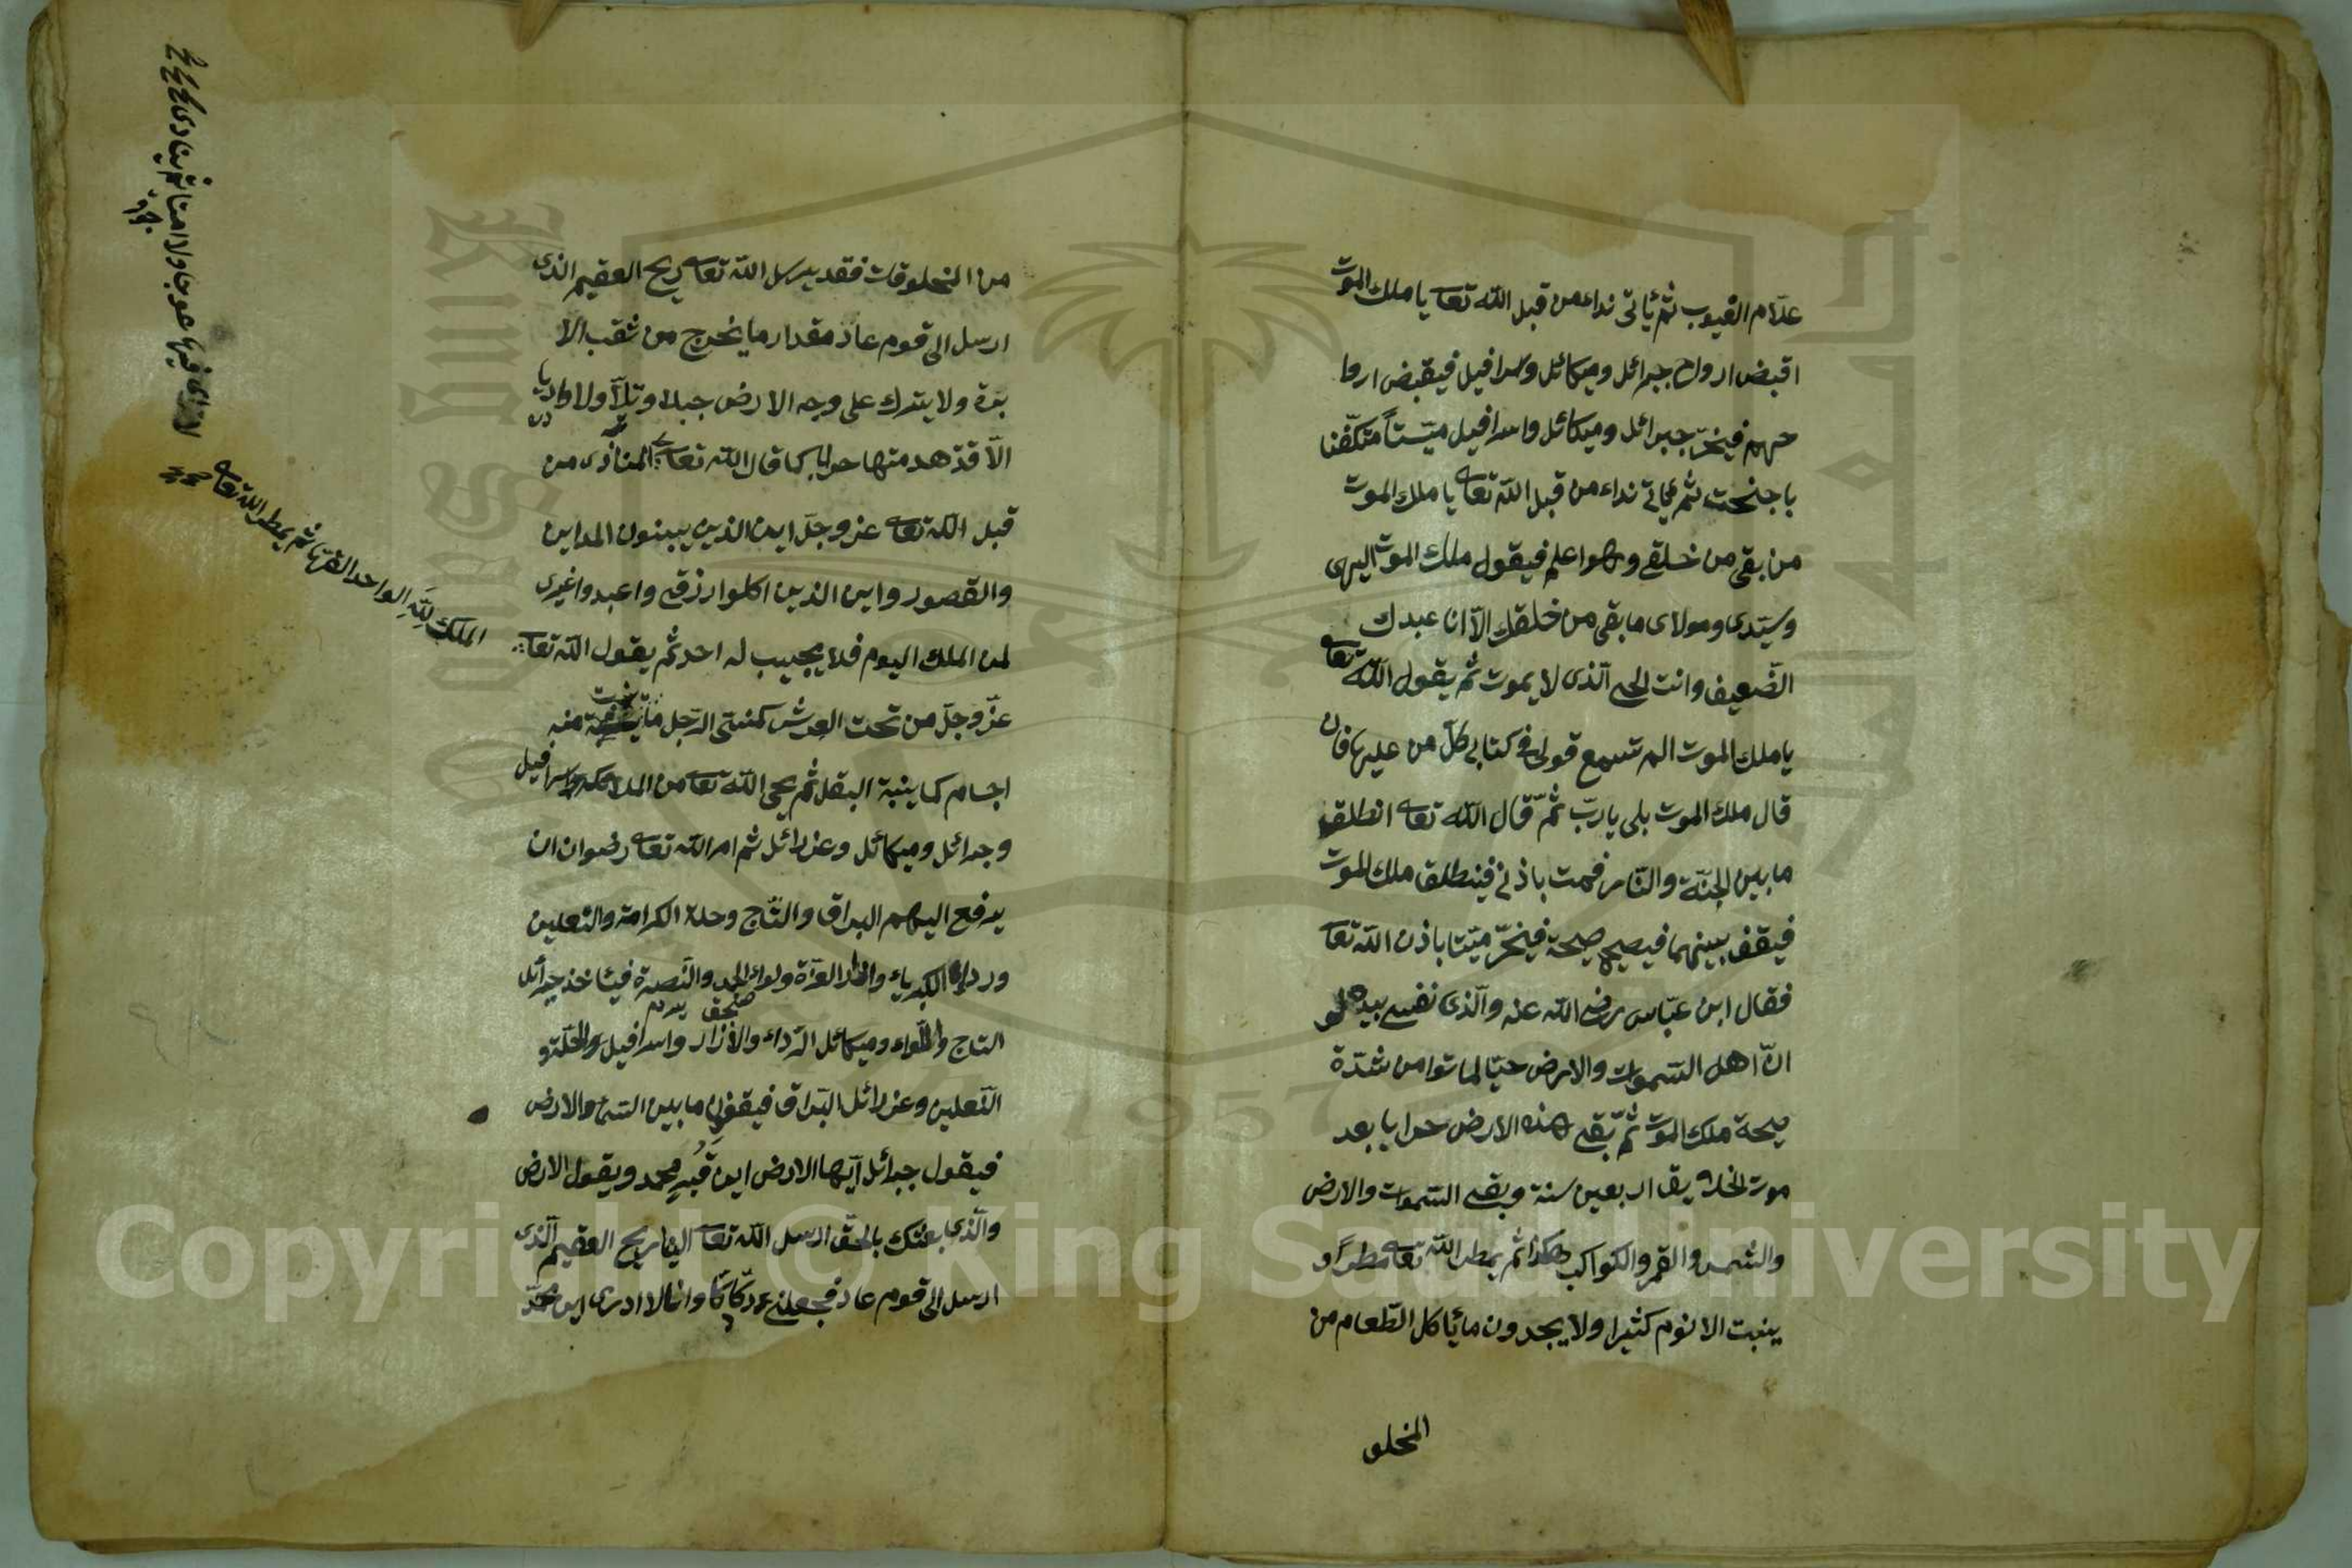 علّام الغيوب ثم يأتى نداء من قبل الله تعا يا ملك الموت
اقبض ارواح جبرائل وميكائل واسرافيل فيقبض اروا
حهم فيخرّ جبرائل وميكائل واسرافيل ميّتاً متكفّنا
باجنحت ثم ياتى نداء من قبل الله تعا يا ملك الموت
من بقى من خلقى وهو اعلم فيقول ملك الموت الهى
وسيّدى ومولاى ما بقى من خلقك الّا انا عبدك
الضّعيف وانت الحى الّذى لا يموت ثم يقول الله تعا
يا ملك الموت الم تسمع قولى فى كتابى كلّ من عليها فان
قال ملك الموت بلى يا ربّ ثمّ قال الله تعا انطلق
ما بين الجنّة والنّار فمت باذنى فينطلق ملك الموت
فيقف بينهما فيصيح صيحة فيخرّ ميّتا باذن الله تعا
فقال ابن عبّاس رضى الله عنه والّذى نفسى بيده لو
انّ اهل السّموات والارض حيّا لماتوا من شدّة
صيحة ملك الموت ثمّ بقى هذه الارض خرابا بعد
موت الخلايق اربعين سنة وبقى السّموات والارض
والشمس والقمر والكواكب هكذا ثم يمطر الله تعا مطراً و
ينبت الانوم كثيرا ولا يجدون ما يأكل الطّعام من
المخلو
من المخلوقات فقد يرسل الله تعا ريح العقيم الذى
ارسل الى قوم عاد مقدار ما يخرج من ثقب الا
برة ولا يترك على وجه الارض جبلا وتلّا ولا
الّا قد هدمتها خرابا كما قال الله تعا المنادى من
قبل الله تعا عز وجلّ اين الذين يبنون المداين
والقصور واين الذين اكلوا رزقى واعبدوا غيرى
لمن الملك اليوم فلا يجيب له احد ثم يقول الله تعا
عزّ وجلّ من تحت العرش كمنى الرّجل ما ينبت منه
اجسام كما ينبة البقل ثم يحى الله تعا من الملائكة واسرافيل
وجبرائل وميكائل وعزرائل ثم امر الله تعا رضوان ان
يرفع اليهم البراق والتّاج وحلة الكرامة والنعلين
ورداء الكبرياء وازار العزّة ولواء الحمد والنّصرة فيأخذ جبرأئل
التاج واللّواء وميكائل الرّداء والازار واسرافيل والحلّة و
النّعلين وعزرائل البراق فيقفون ما بين السّماء والارض
فيقول جبرائل ايّها الارض اين قبر محمد ويقول الارض
والّذى بعثك بالحقّ ارسل الله تعا الىّ ريح العقيم الّذى
ارسل الى قوم عاد فجعلنى دكّا دكّا وانا لا ادرى اين محمّد
الملك لِلّهِ الواحد القهّار ثم يمطر الله تعا
لا ترى فيها عوجا ولا امتا ثم ينادى